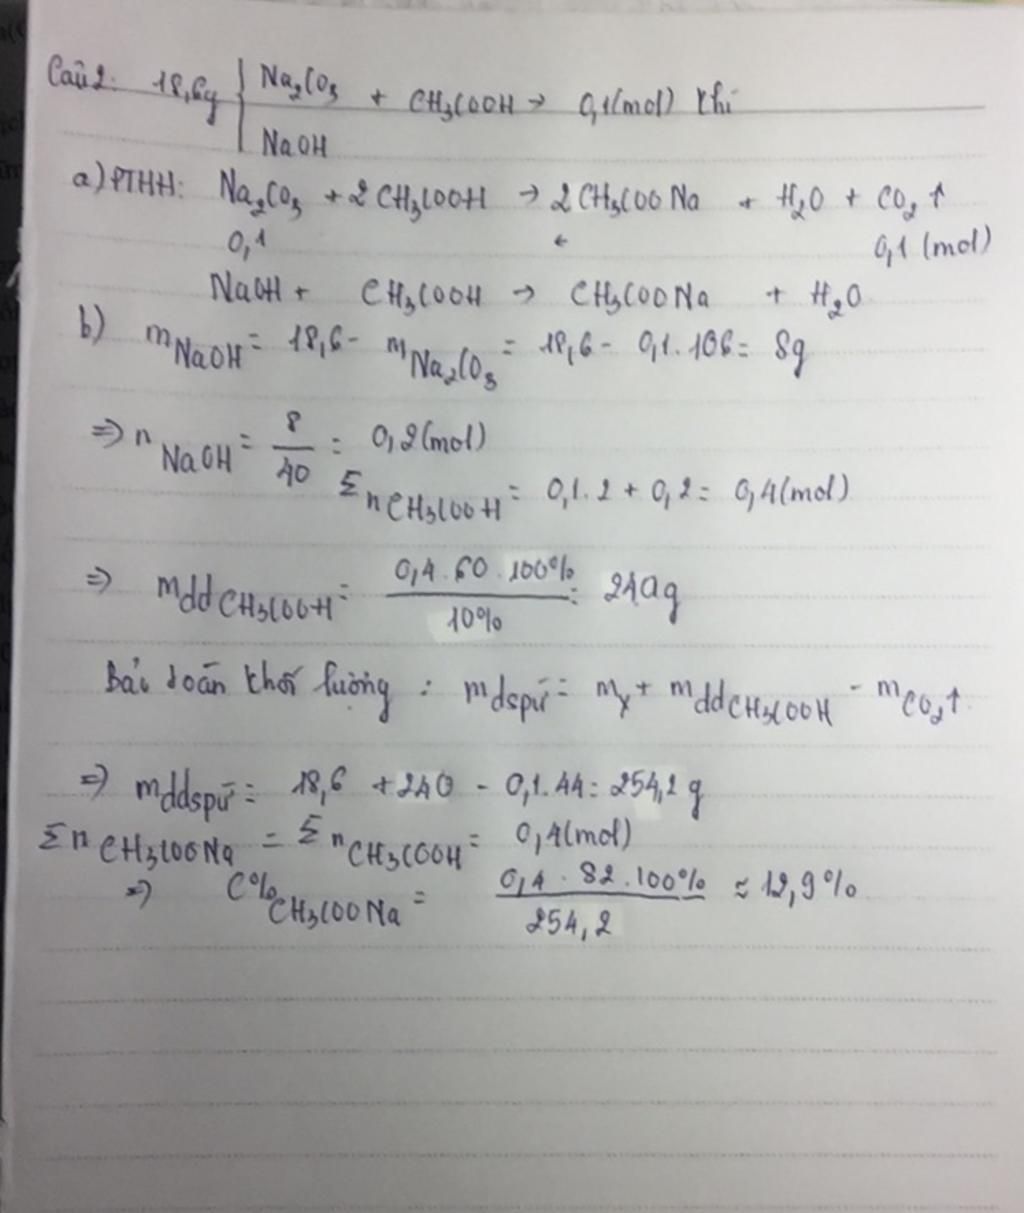 Câu 2: 18,6g { Na₂CO₃ + CH₃COOH → 0,1(mol) khí
NaOH
a) PTHH: Na₂CO₃ + 2 CH₃COOH → 2 CH₃COONa + H₂O + CO₂ ↑
0,1 ← 0,1 (mol)
NaOH + CH₃COOH → CH₃COONa + H₂O
b) m NaOH = 18,6 - m Na₂CO₃ = 18,6 - 0,1.106 = 8g
=> n NaOH = 8/40 = 0,2(mol)
Σ n CH₃COOH = 0,1.2 + 0,2 = 0,4(mol)
=> mdd CH₃COOH = 0,4.60.100% / 10% = 240g
Bảo toàn khối lượng : mdspứ = mγ + mdd CH₃COOH - m CO₂↑
=> mddspứ = 18,6 + 240 - 0,1.44 = 254,2 g
Σ n CH₃COONa = Σ n CH₃COOH = 0,4(mol)
=> C% CH₃COONa = 0,4.82.100% / 254,2 ≈ 12,9%